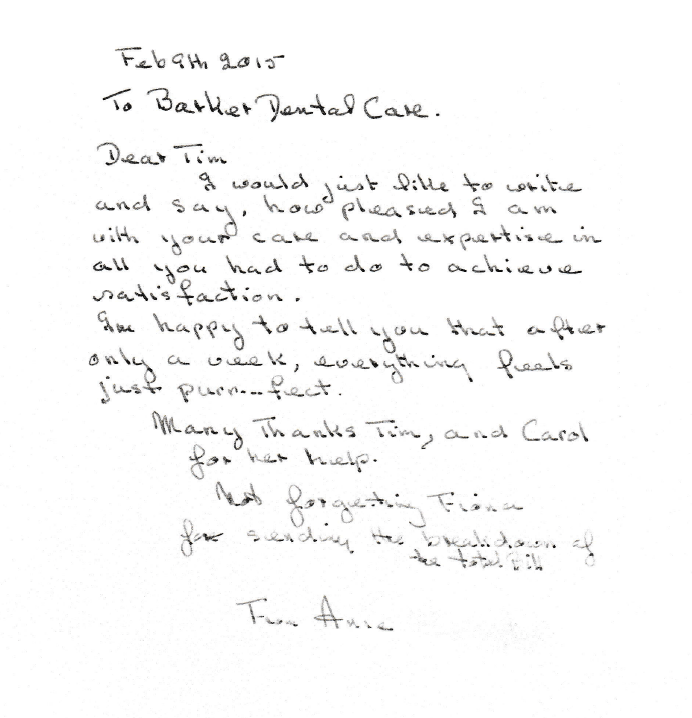 Feb 9th 2015
To Barker Dental Care.
Dear Tim
I would just like to write
and say, how pleased I am
with your care and expertise in
all you had to do to achieve
satisfaction.
Im happy to tell you that after
only a week, everything feels
just purr...fect.
Many Thanks Tim, and Carol
for her help.
Not forgetting Fiona
for sending the breakdown of
the total Bill
From